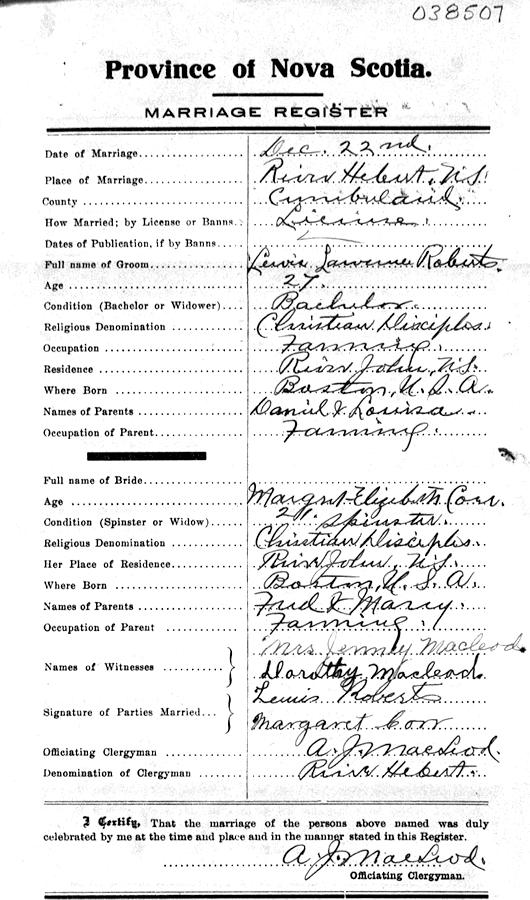 038507
Province of Nova Scotia.
MARRIAGE REGISTER
Date of Marriage Dec. 22nd.
Place of Marriage River Hebert, N.S.
County Cumberland.
How Married; by License or Banns License.
Dates of Publication, if by Banns
Full name of Groom Lewis Lawrence Roberts.
Age 27.
Condition (Bachelor or Widower) Bachelor.
Religious Denomination Christian Disciples.
Occupation Farming.
Residence River John, N.S.
Where Born Boston, U.S.A.
Names of Parents Daniel & Louisa
Occupation of Parent Farming.
Full name of Bride Margret Elizibeth Corr.
Age 21.
Condition (Spinster or Widow) Spinster.
Religious Denomination Christian Disciples.
Her Place of Residence River John, N.S.
Where Born Boston, U.S.A.
Names of Parents Fred & Marry.
Occupation of Parent Farming.
Names of Witnesses Mrs. Macleod.
Dorothy Macleod.
Signature of Parties Married Lewis Roberts
Margaret Corr
Officiating Clergyman A. J. MacLeod.
Denomination of Clergyman River Hebert.
I Certify, That the marriage of the persons above named was duly
celebrated by me at the time and place and in the manner stated in this Register.
A. J. MacLeod.
Officiating Clergyman.